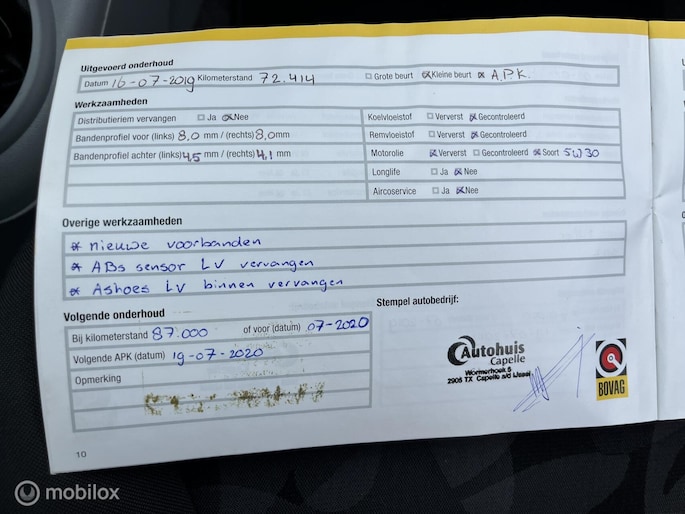 Uitgevoerd onderhoud
Datum 16-07-2019 Kilometerstand 72.414 ☐ Grote beurt ☒ Kleine beurt ☒ A.P.K.
Werkzaamheden
Distributieriem vervangen ☐ Ja ☒ Nee
Koelvloeistof ☐ Ververst ☒ Gecontroleerd
Bandenprofiel voor (links) 8,0 mm / (rechts) 8,0 mm
Remvloeistof ☐ Ververst ☒ Gecontroleerd
Bandenprofiel achter (links) 4,5 mm / (rechts) 4,1 mm
Motorolie ☒ Ververst ☐ Gecontroleerd ☒ Soort 5W30
Longlife ☐ Ja ☒ Nee
Aircoservice ☐ Ja ☒ Nee
Overige werkzaamheden
* nieuwe voorbanden
* ABs sensor LV vervangen
* Ashoes LV binnen vervangen
Volgende onderhoud
Bij kilometerstand 87.000 of voor (datum) 07-2020
Volgende APK (datum) 19-07-2020
Opmerking
Stempel autobedrijf:
Autohuis
Capelle
Wormerhoek 5
2905 TX Capelle a/d IJssel
BOVAG
10
mobilox